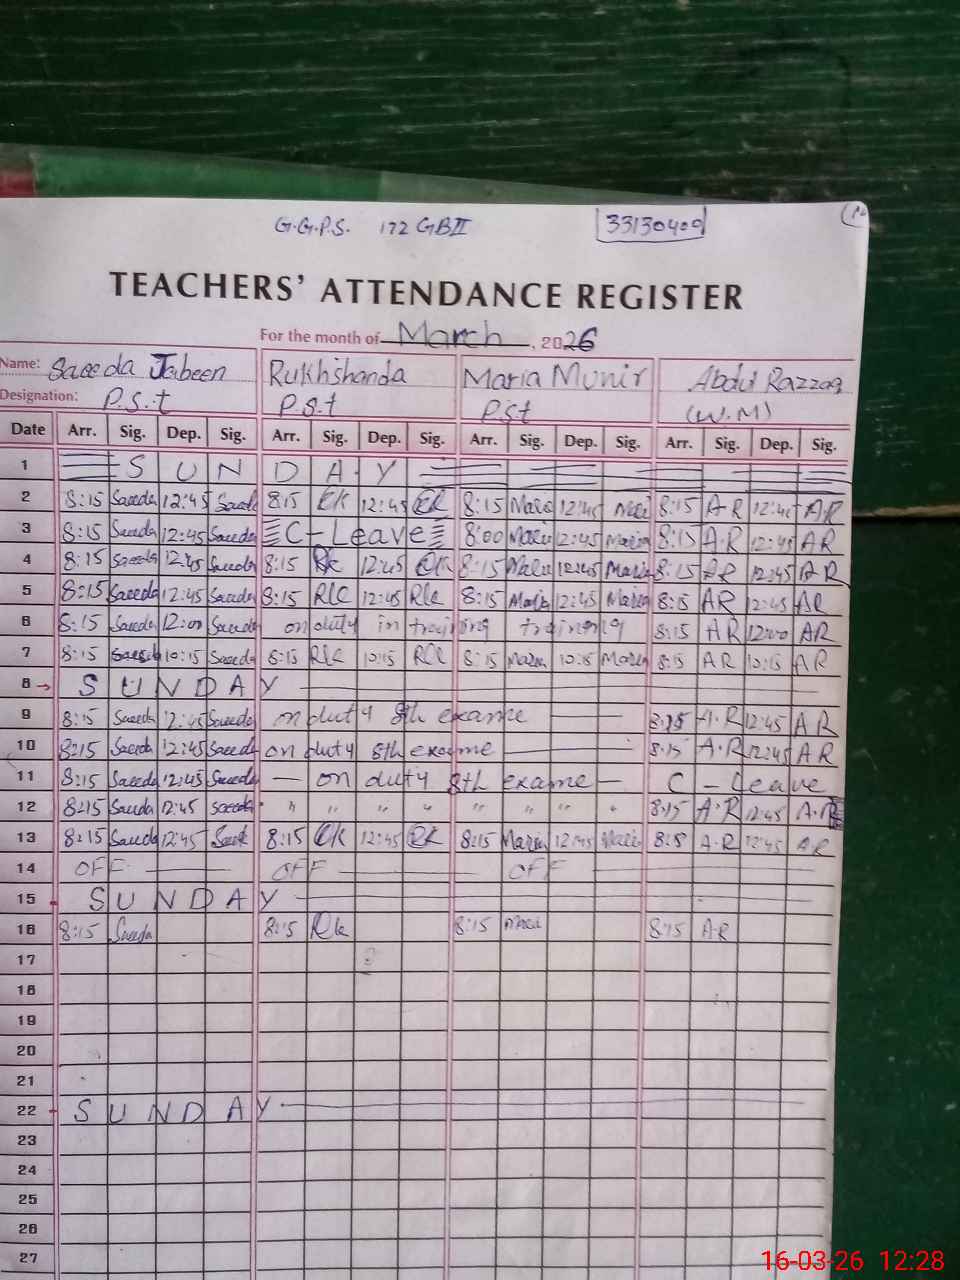 G.G.P.S. 172 GBII 33130400
TEACHERS' ATTENDANCE REGISTER
For the month of March, 2026
Name: Saeeda Jabeen Rukhshanda Maria Munir Abdul Razzaq
Designation: P.S.t P.S.t P.St (W.M)
Date Arr. Sig. Dep. Sig. Arr. Sig. Dep. Sig. Arr. Sig. Dep. Sig. Arr. Sig. Dep. Sig.
1 SUNDAY
2 8:15 Saeeda 12:45 Saeeda 8:15 RK 12:45 RK 8:15 Maria 12:45 8:15 A R 12:45 AR
3 8:15 Saeeda 12:45 Saeeda C-Leave 8:00 Maria 12:45 Maria 8:15 A.R 12:45 AR
4 8:15 Saeeda 12:45 Saeeda 8:15 RK 12:45 RK 8:15 Maria 12:45 Maria 8:15 AR 12:45 AR
5 8:15 Saeeda 12:45 Saeeda 8:15 RK 12:45 RK 8:15 Maria 12:45 Maria 8:15 AR 12:45 AR
6 8:15 Saeeda 12:00 Saeeda on duty in training training 8:15 AR 12:00 AR
7 8:15 Saeeda 10:15 Saeeda 8:15 RK 10:15 RK 8:15 Maria 10:15 Maria 8:15 AR 10:15 AR
8 → SUNDAY
9 8:15 Saeeda 12:45 Saeeda on duty 8th exame 8:15 A.R 12:45 AR
10 8:15 Saeeda 12:45 Saeeda on duty 8th exame 8:15 A.R 12:45 AR
11 8:15 Saeeda 12:45 Saeeda — on duty 8th exame — C - Leave
12 8:15 Saeeda 12:45 Saeeda " " " " " " " " 8:15 A.R 12:45 A.R
13 8:15 Saeeda 12:45 8:15 RK 12:45 RK 8:15 Maria 12:45 Maria 8:15 A.R 12:45 AR
14 OFF OFF OFF
15 SUNDAY
16 8:15 Saeeda 8:15 Rk 8:15 Maria 8:15 A.R
17
18
19
20
21
22 SUNDAY
23
24
25
26
27
16-03-26 12:28